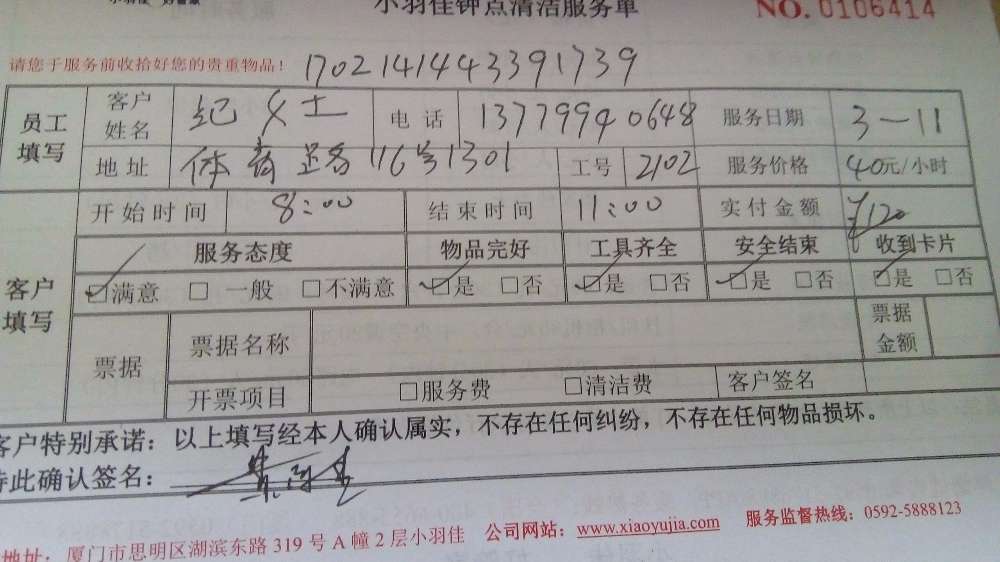 小羽佳钟点清洁服务单 NO. 0106414
请您于服务前收拾好您的贵重物品! 1702141443391739
员工填写 客户姓名 纪女士 电话 13779940648 服务日期 3-11
地址 体育路116号1301 工号 2102 服务价格 40元/小时
客户填写 开始时间 8:00 结束时间 11:00 实付金额 ¥120
服务态度 物品完好 工具齐全 安全结束 收到卡片
☑满意 □一般 □不满意 ☑是 □否 ☑是 □否 ☑是 □否 ☑是 □否
票据 票据名称 票据金额
开票项目 □服务费 □清洁费 客户签名
客户特别承诺：以上填写经本人确认属实，不存在任何纠纷，不存在任何物品损坏。
特此确认签名：
地址：厦门市思明区湖滨东路319号A幢2层小羽佳 公司网站：www.xiaoyujia.com 服务监督热线：0592-5888123